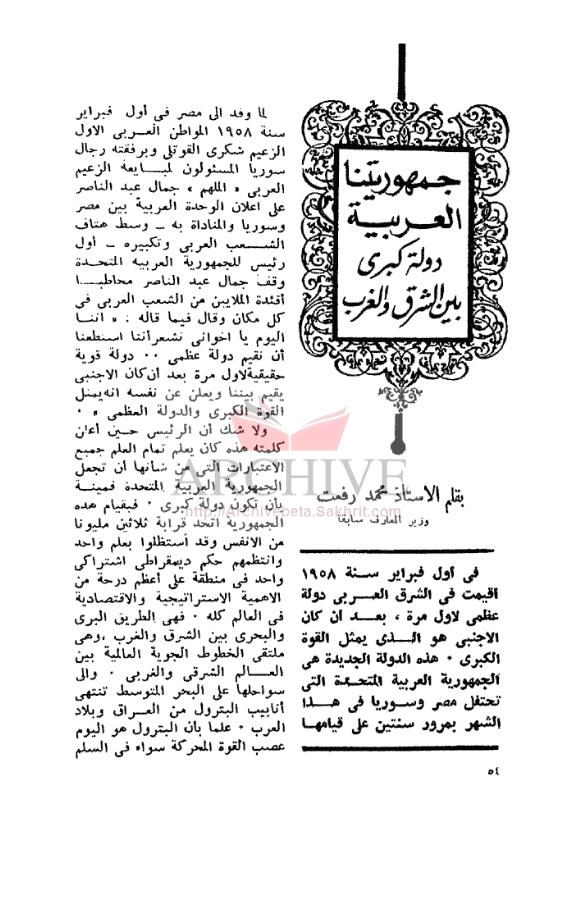 جمهوريتنا
العربية
دولة كبرى
بين الشرق والغرب
بقلم الاستاذ محمد رفعت
وزير المعارف سابقا
فى أول فبراير سنة ١٩٥٨
أقيمت فى الشرق العربى دولة
عظمى لاول مرة ، بعد ان كان
الاجنبى هو الذى يمثل القوة
الكبرى ٠ هذه الدولة الجديدة هى
الجمهورية العربية المتحدة التى
تحتفل مصر وسوريا فى هذا
الشهر بمرور سنتين على قيامها
لما وفد الى مصر فى أول فبراير
سنة ١٩٥٨ المواطن العربى الاول
الزعيم شكرى القوتلى وبرفقته رجال
سوريا المسئولون لمبايعة الزعيم
العربى « الملهم » جمال عبد الناصر
على اعلان الوحدة العربية بين مصر
وسوريا والمناداة به ــ وسط هتاف
الشعب العربى وتكبيره ــ أول
رئيس للجمهورية العربية المتحدة
وقف جمال عبد الناصر مخاطبا
أفئدة الملايين من الشعب العربى فى
كل مكان وقال فيما قاله : « اننا
اليوم يا اخوانى نشعر أننا استطعنا
أن نقيم دولة عظمى ٠٠ دولة قوية
حقيقية لاول مرة بعد أن كان الاجنبى
يقيم بيننا ويعلن عن نفسه انه يمثل
القوة الكبرى والدولة العظمى » ٠
ولا شك أن الرئيس حين أعلن
كلمته هذه كان يعلم تمام العلم جميع
الاعتبارات التى من شانها ان تجعل
الجمهورية العربية المتحدة قمينة
بأن تكون دولة كبرى ٠ فبقيام هذه
الجمهورية اتحد قرابة ثلاثين مليونا
من الانفس وقد أستظلوا بعلم واحد
وانتظمهم حكم ديمقراطى اشتراكى
واحد فى منطقة على أعظم درجة من
الاهمية الاستراتيجية والاقتصادية
فى العالم كله ٠ فهى الطريق البرى
والبحرى بين الشرق والغرب ،وهى
ملتقى الخطوط الجوية العالمية بين
العالم الشرقى والغربى ٠ والى
سواحلها على البحر المتوسط تنتهى
أنابيب البترول من العراق وبلاد
العرب ٠ علما بأن البترول هو اليوم
عصب القوة المحركة سواء فى السلم
٥٤
ARCHIVE
http://Archivebeta.Sakhrit.com